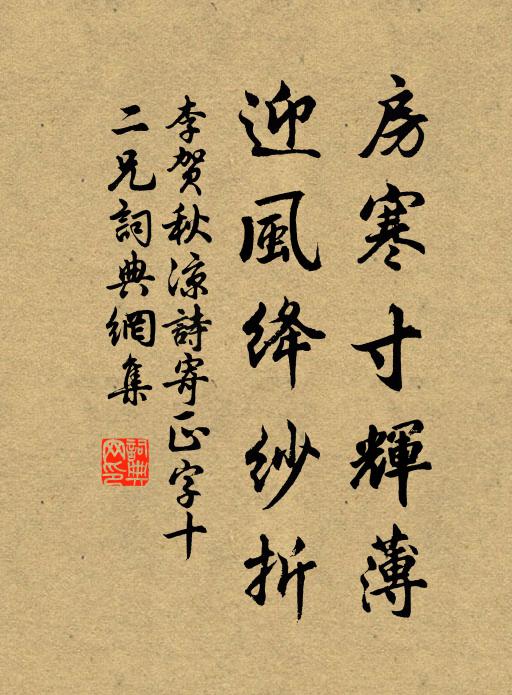 房寒寸輝薄
迎風绛紗折
李贺秋凉詩寄正字十
二兄詞典網集
詞典网印